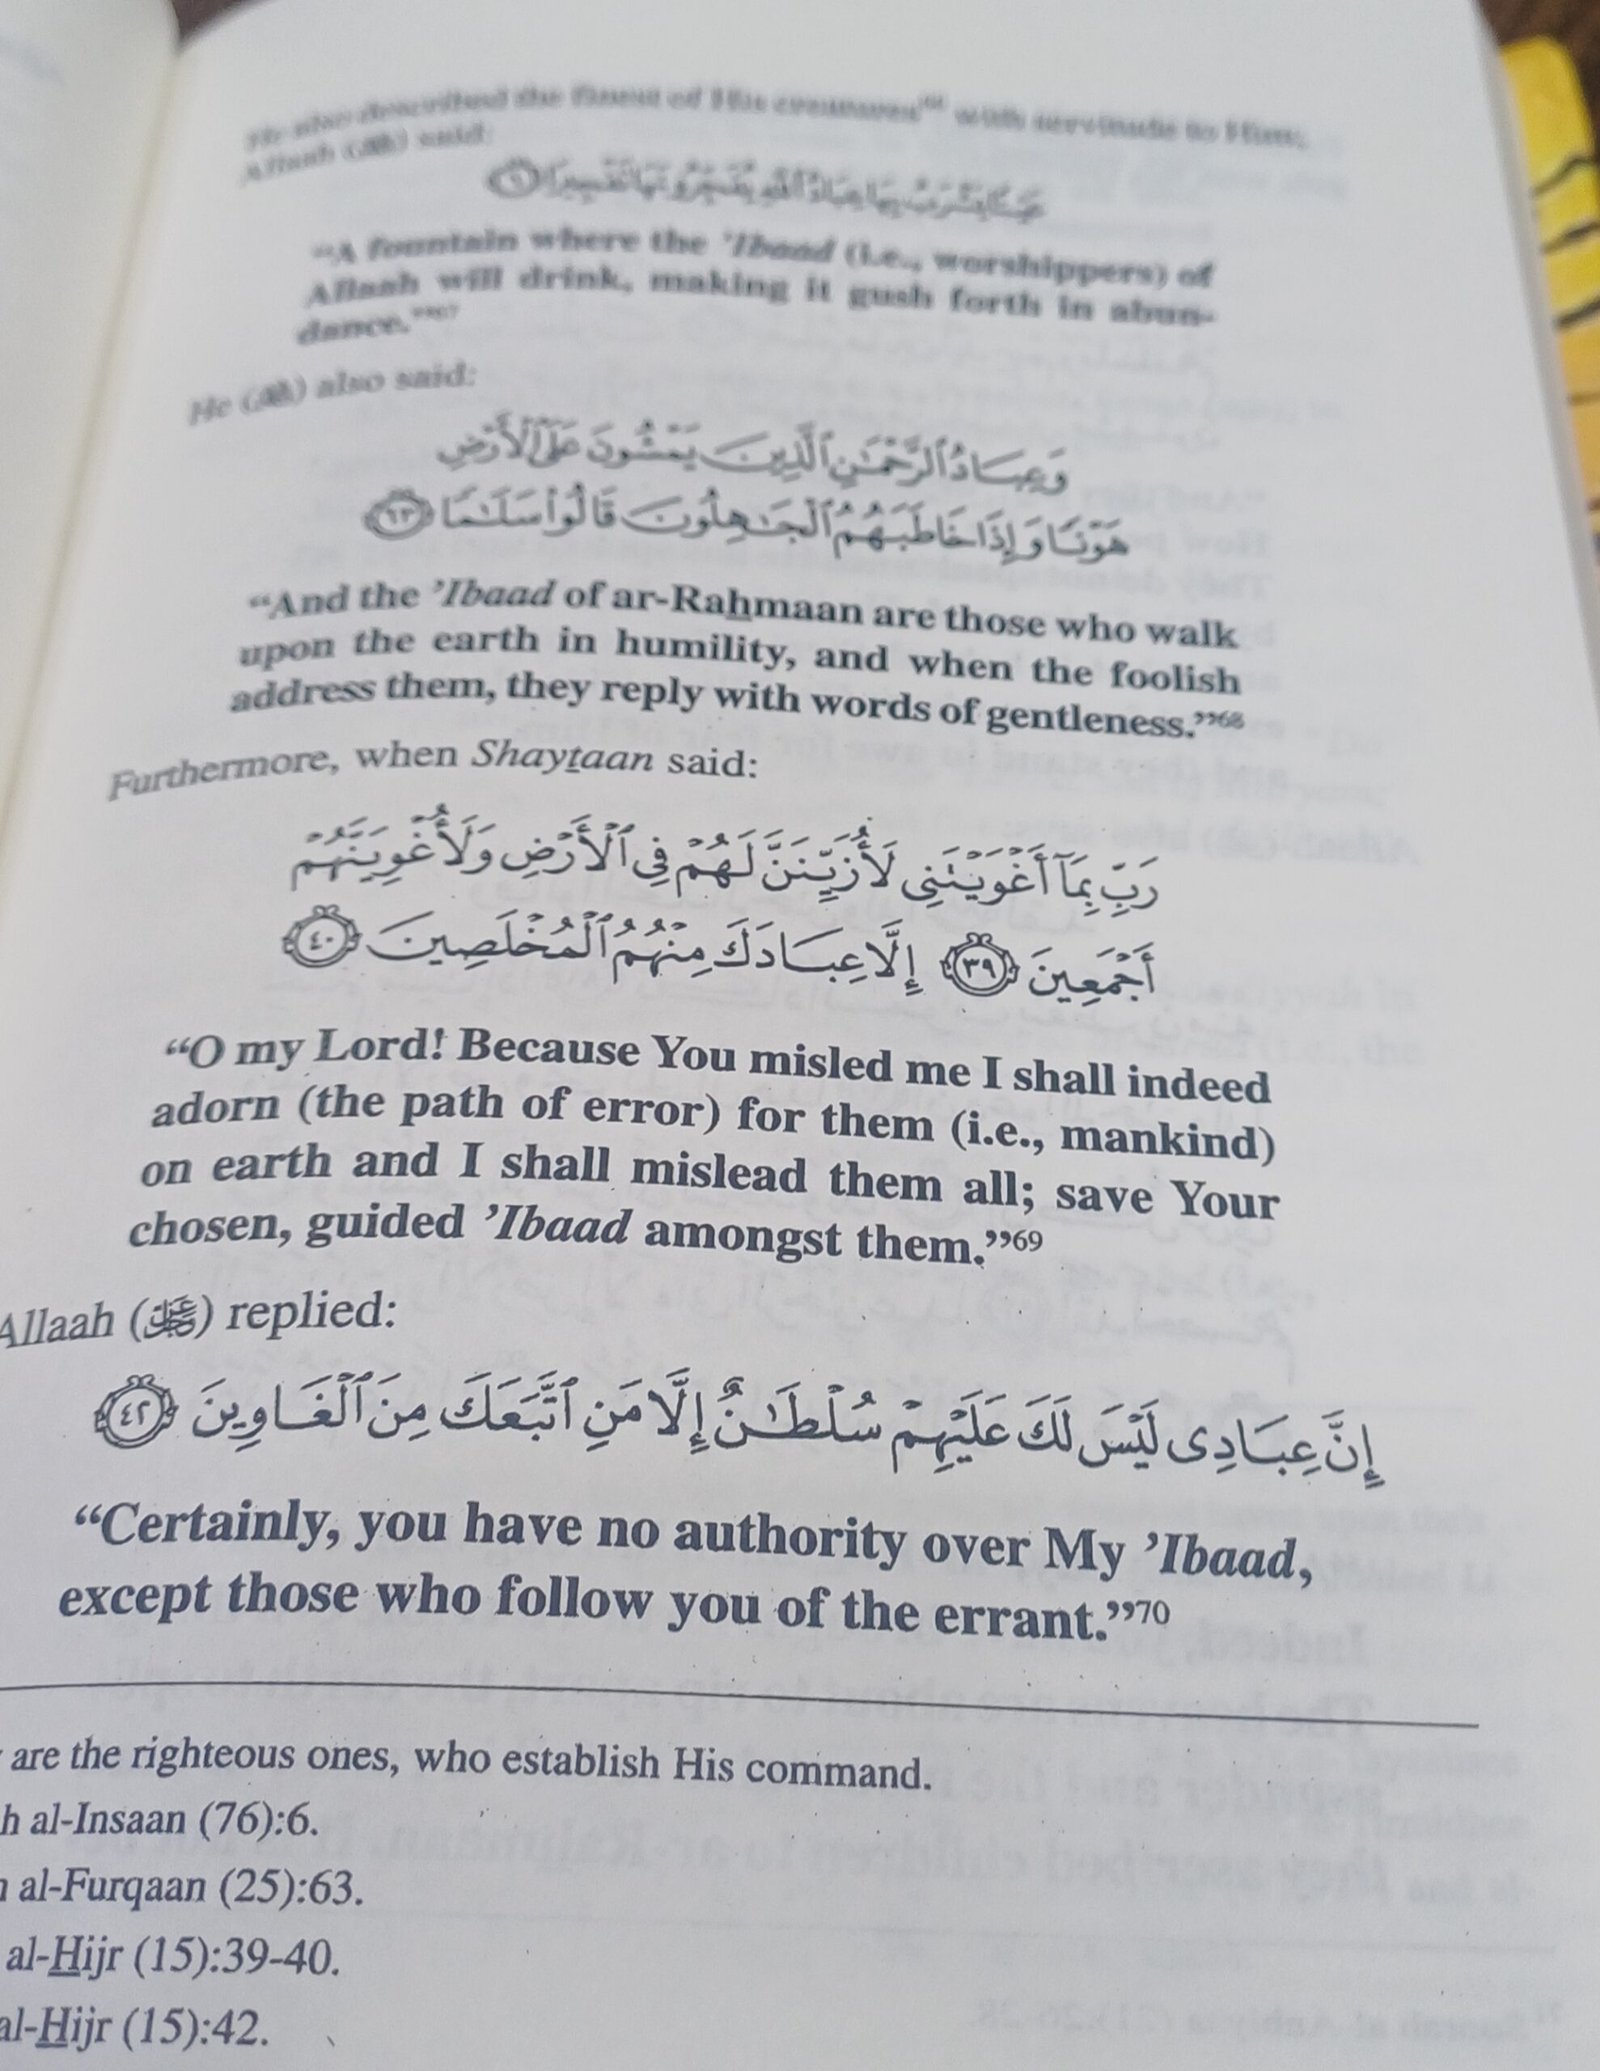 He also described the finest of His creatures⁶⁶ with servitude to Him;
Allaah (ﷻ) said:
عَيْنًا يَشْرَبُ بِهَا عِبَادُ ٱللَّهِ يُفَجِّرُونَهَا تَفْجِيرًا ٦
“A fountain where the ’Ibaad (i.e., worshippers) of
Allaah will drink, making it gush forth in abun-
dance.”⁶⁷
He (ﷻ) also said:
وَعِبَادُ ٱلرَّحْمَٰنِ ٱلَّذِينَ يَمْشُونَ عَلَى ٱلْأَرْضِ
هَوْنًا وَإِذَا خَاطَبَهُمُ ٱلْجَٰهِلُونَ قَالُوا۟ سَلَٰمًا ٦٣
“And the ’Ibaad of ar-Rahmaan are those who walk
upon the earth in humility, and when the foolish
address them, they reply with words of gentleness.”⁶⁸
Furthermore, when Shaytaan said:
رَبِّ بِمَآ أَغْوَيْتَنِى لَأُزَيِّنَنَّ لَهُمْ فِى ٱلْأَرْضِ وَلَأُغْوِيَنَّهُمْ
أَجْمَعِينَ ٣٩ إِلَّا عِبَادَكَ مِنْهُمُ ٱلْمُخْلَصِينَ ٤٠
“O my Lord! Because You misled me I shall indeed
adorn (the path of error) for them (i.e., mankind)
on earth and I shall mislead them all; save Your
chosen, guided ’Ibaad amongst them.”⁶⁹
Allaah (عز وجل) replied:
إِنَّ عِبَادِى لَيْسَ لَكَ عَلَيْهِمْ سُلْطَٰنٌ إِلَّا مَنِ ٱتَّبَعَكَ مِنَ ٱلْغَاوِينَ ٤٢
“Certainly, you have no authority over My ’Ibaad,
except those who follow you of the errant.”⁷⁰
are the righteous ones, who establish His command.
h al-Insaan (76):6.
al-Furqaan (25):63.
al-Hijr (15):39-40.
al-Hijr (15):42.